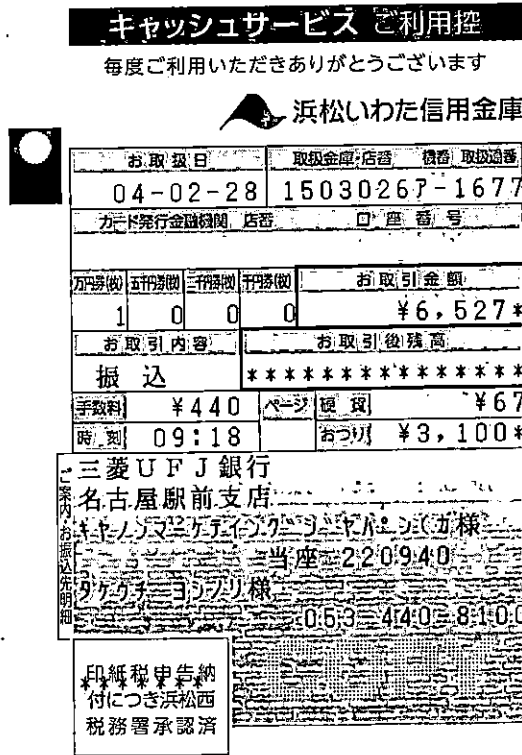 キャッシュサービス ご利用控
毎度ご利用いただきありがとうございます
浜松いわた信用金庫
お取扱日 取扱金庫・店番 機番 取扱通番
04-02-28 15030267ア-1677
カード発行金融機関 店番 口座番号
万円券(枚) 五千円券(枚) 二千円券(枚) 千円券(枚) お取引金額
1 0 0 0 ¥6,527*
お取引内容 お取引後残高
振込 **************
手数料 ¥440 ページ 硬貨 ¥67
時刻 09:18 おつり ¥3,100*
ご案内・お振込先明細
三菱UFJ銀行
名古屋駅前支店
キヤノンマーケテイングジヤパン(カ様
当座 220940
タケグチ ヨシノリ様
053-440-8100
印紙税申告納
*******
付につき浜松西
税務署承認済